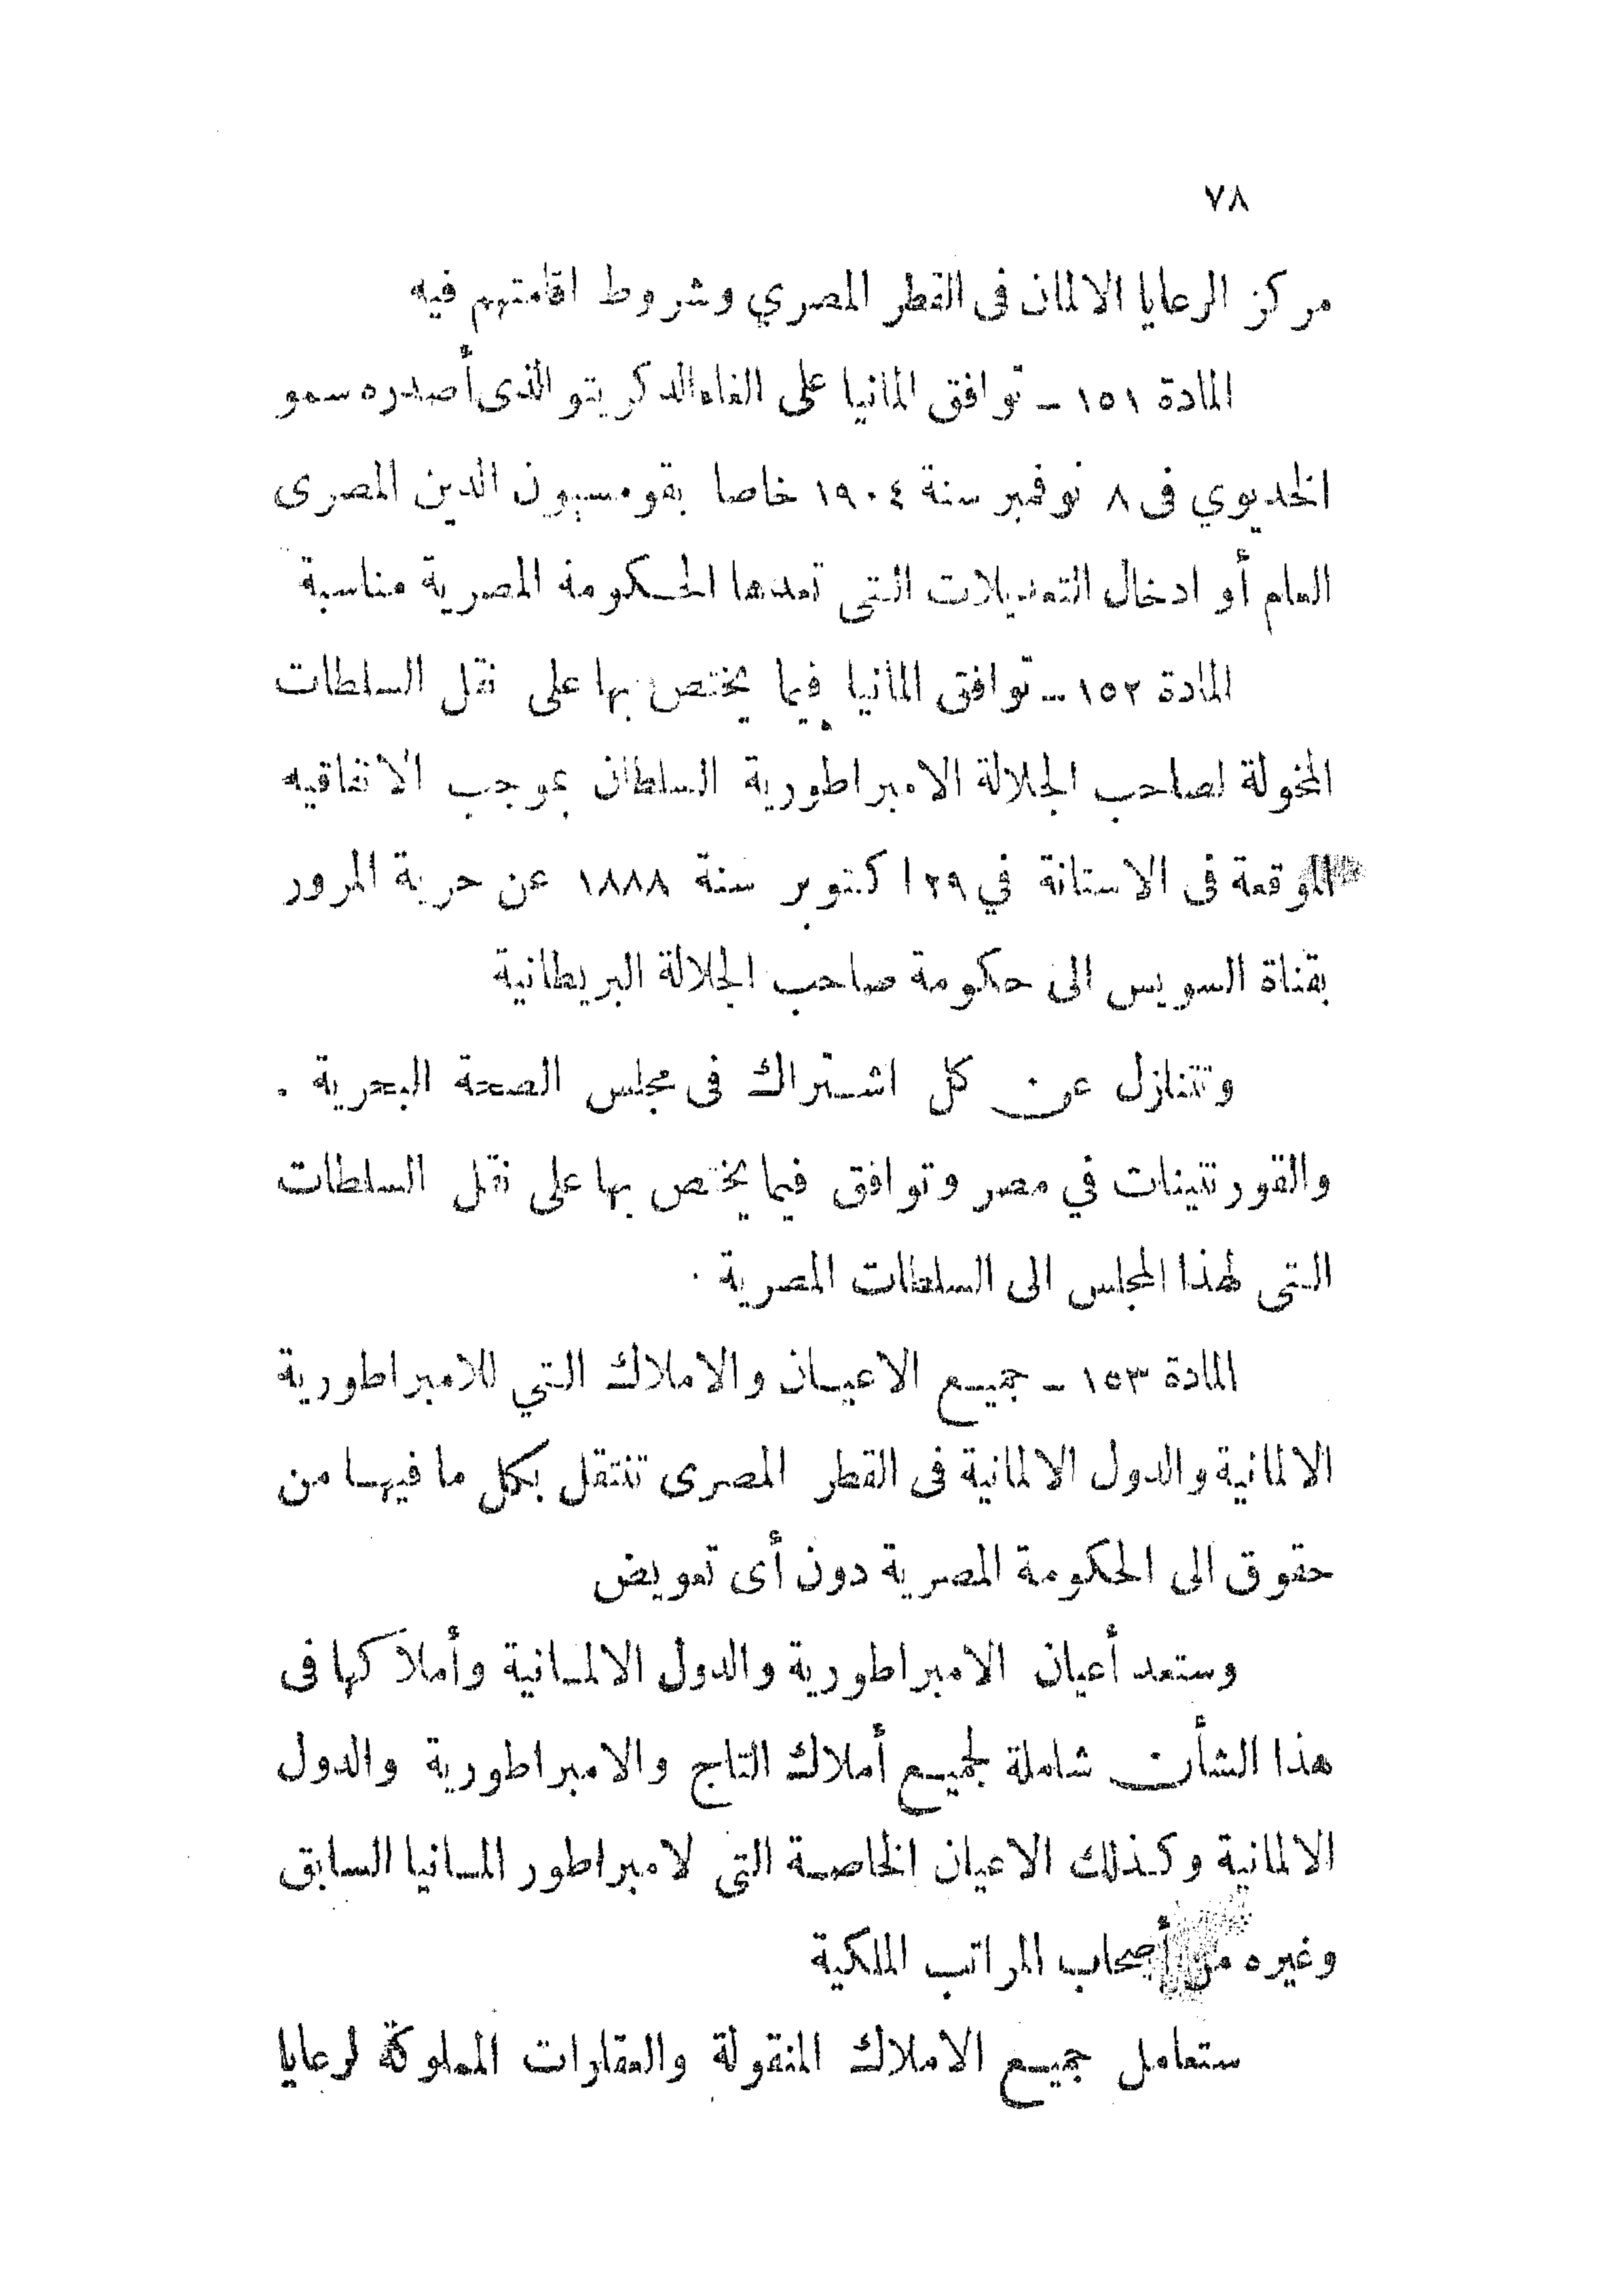 ٧٨
مركز الرعايا الالمان فى القطر المصري وشروط اقامتهم فيه
المادة ١٥١ ــ توافق المانيا على الغاء الدكريتو الذى أصدره سمو
الخديوي فى ٨ نوفمبر سنة ١٩٠٤ خاصا بقومسيون الدين المصرى
العام أو ادخال التعديلات التى تعدها الحكومة المصرية مناسبة
المادة ١٥٢ ــ توافق المانيا فيما يختص بها على نقل السلطات
المخولة لصاحب الجلالة الامبراطورية السلطان بموجب الاتفاقيه
الموقعة فى الاستانة في ٢٩ اكتوبر سنة ١٨٨٨ عن حرية المرور
بقناة السويس الى حكومة صاحب الجلالة البريطانية
وتتنازل عن كل اشتراك فى مجلس الصحة البحرية .
والقورنتينات في مصر وتوافق فيما يختص بها على نقل السلطات
التى لهذا المجلس الى السلطات المصرية .
المادة ١٥٣ ــ جميع الاعيان والاملاك التي للامبراطورية
الالمانية والدول الالمانية فى القطر المصرى تنتقل بكل ما فيها من
حقوق الى الحكومة المصرية دون أى تعويض
وستعد أعيان الامبراطورية والدول الالمانية وأملاكها فى
هذا الشأن شاملة لجميع أملاك التاج والامبراطورية والدول
الالمانية وكذلك الاعيان الخاصة التى لامبراطور المانيا السابق
وغيره من أصحاب المراتب الملكية
ستعامل جميع الاملاك المنقولة والعقارات المملوكة لرعايا